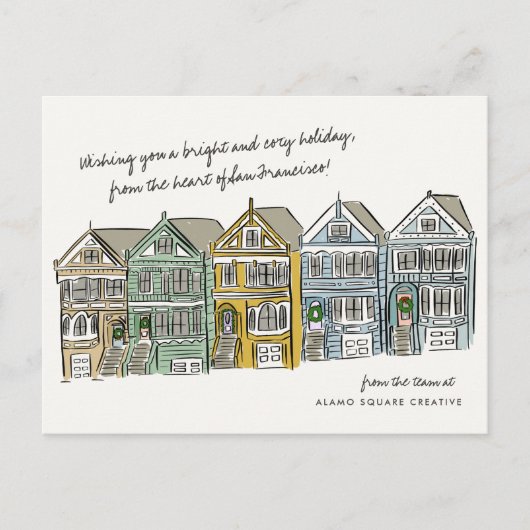 Wishing you a bright and cozy holiday,
from the heart of San Francisco!
from the team at
ALAMO SQUARE CREATIVE